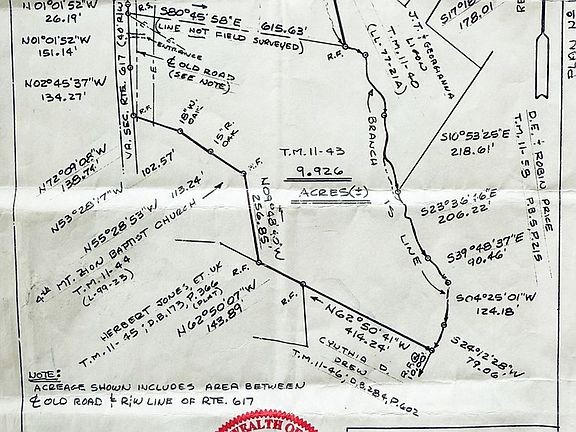 N01°01'52"W
26.19'
N01°01'52"W
151.14'
N02°45'37"W
134.27'
VA. SEC. RTE. 617 (40' R/W)
S80°45'58"E 615.63'
(LINE NOT FIELD SURVEYED)
ENTRANCE
℄ OLD ROAD
(SEE NOTE)
R.F.
R.F.
18" W.
OAK
15" R.
OAK
R.F.
R.F.
N72°09'08"W
138.74'
N53°28'17"W 102.57'
N55°28'53"W 113.24'
4TH MT. ZION BAPTIST CHURCH
T.M. 11-44
(L-99-23)
N09°48'40"W
256.85'
T.M. 11-43
9.926
ACRES(±)
BRANCH
LINE
J.T. & GEORGANNA
LIGON
T.M. 11-40
(LL.77-21A)
178.01'
S10°53'25"E
218.61'
D.E. & ROBIN PRICE
T.M. 11-59 P.B.5, P.215
S23°36'16"E
206.22'
S39°48'37"E
90.46'
S04°25'01"W
124.18'
S24°12'28"W
79.06'
R.F.
R.F.
HERBERT JONES, ET UX
T.M. 11-45; D.B.173, P.366
(PLAT)
N62°50'07"W
143.89'
N62°50'41"W
414.24'
CYNTHIA D.
DREW
T.M. 11-46; D.B.284, P.602
NOTE:
ACREAGE SHOWN INCLUDES AREA BETWEEN
℄ OLD ROAD & R/W LINE OF RTE. 617
ON PLAN